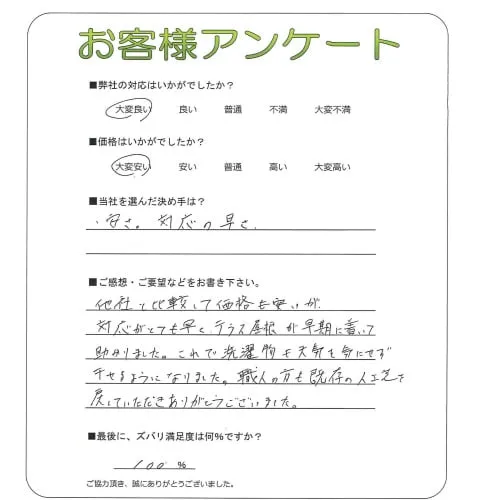 お客様アンケート
■弊社の対応はいかがでしたか?
大変良い 良い 普通 不満 大変不満
■価格はいかがでしたか?
大変安い 安い 普通 高い 大変高い
■当社を選んだ決め手は?
・安さ。対応の早さ
■ご感想・ご要望などをお書き下さい。
他社と比較して価格も安いが
対応がとても早く、テラス屋根が早期に着いて
助かりました。これで洗濯物も天気を気にせず
干せるようになりました。職人の方も既存の人工芝を
戻していただきありがとうございました。
■最後に、ズバリ満足度は何%ですか?
100 %
ご協力頂き、誠にありがとうございました。